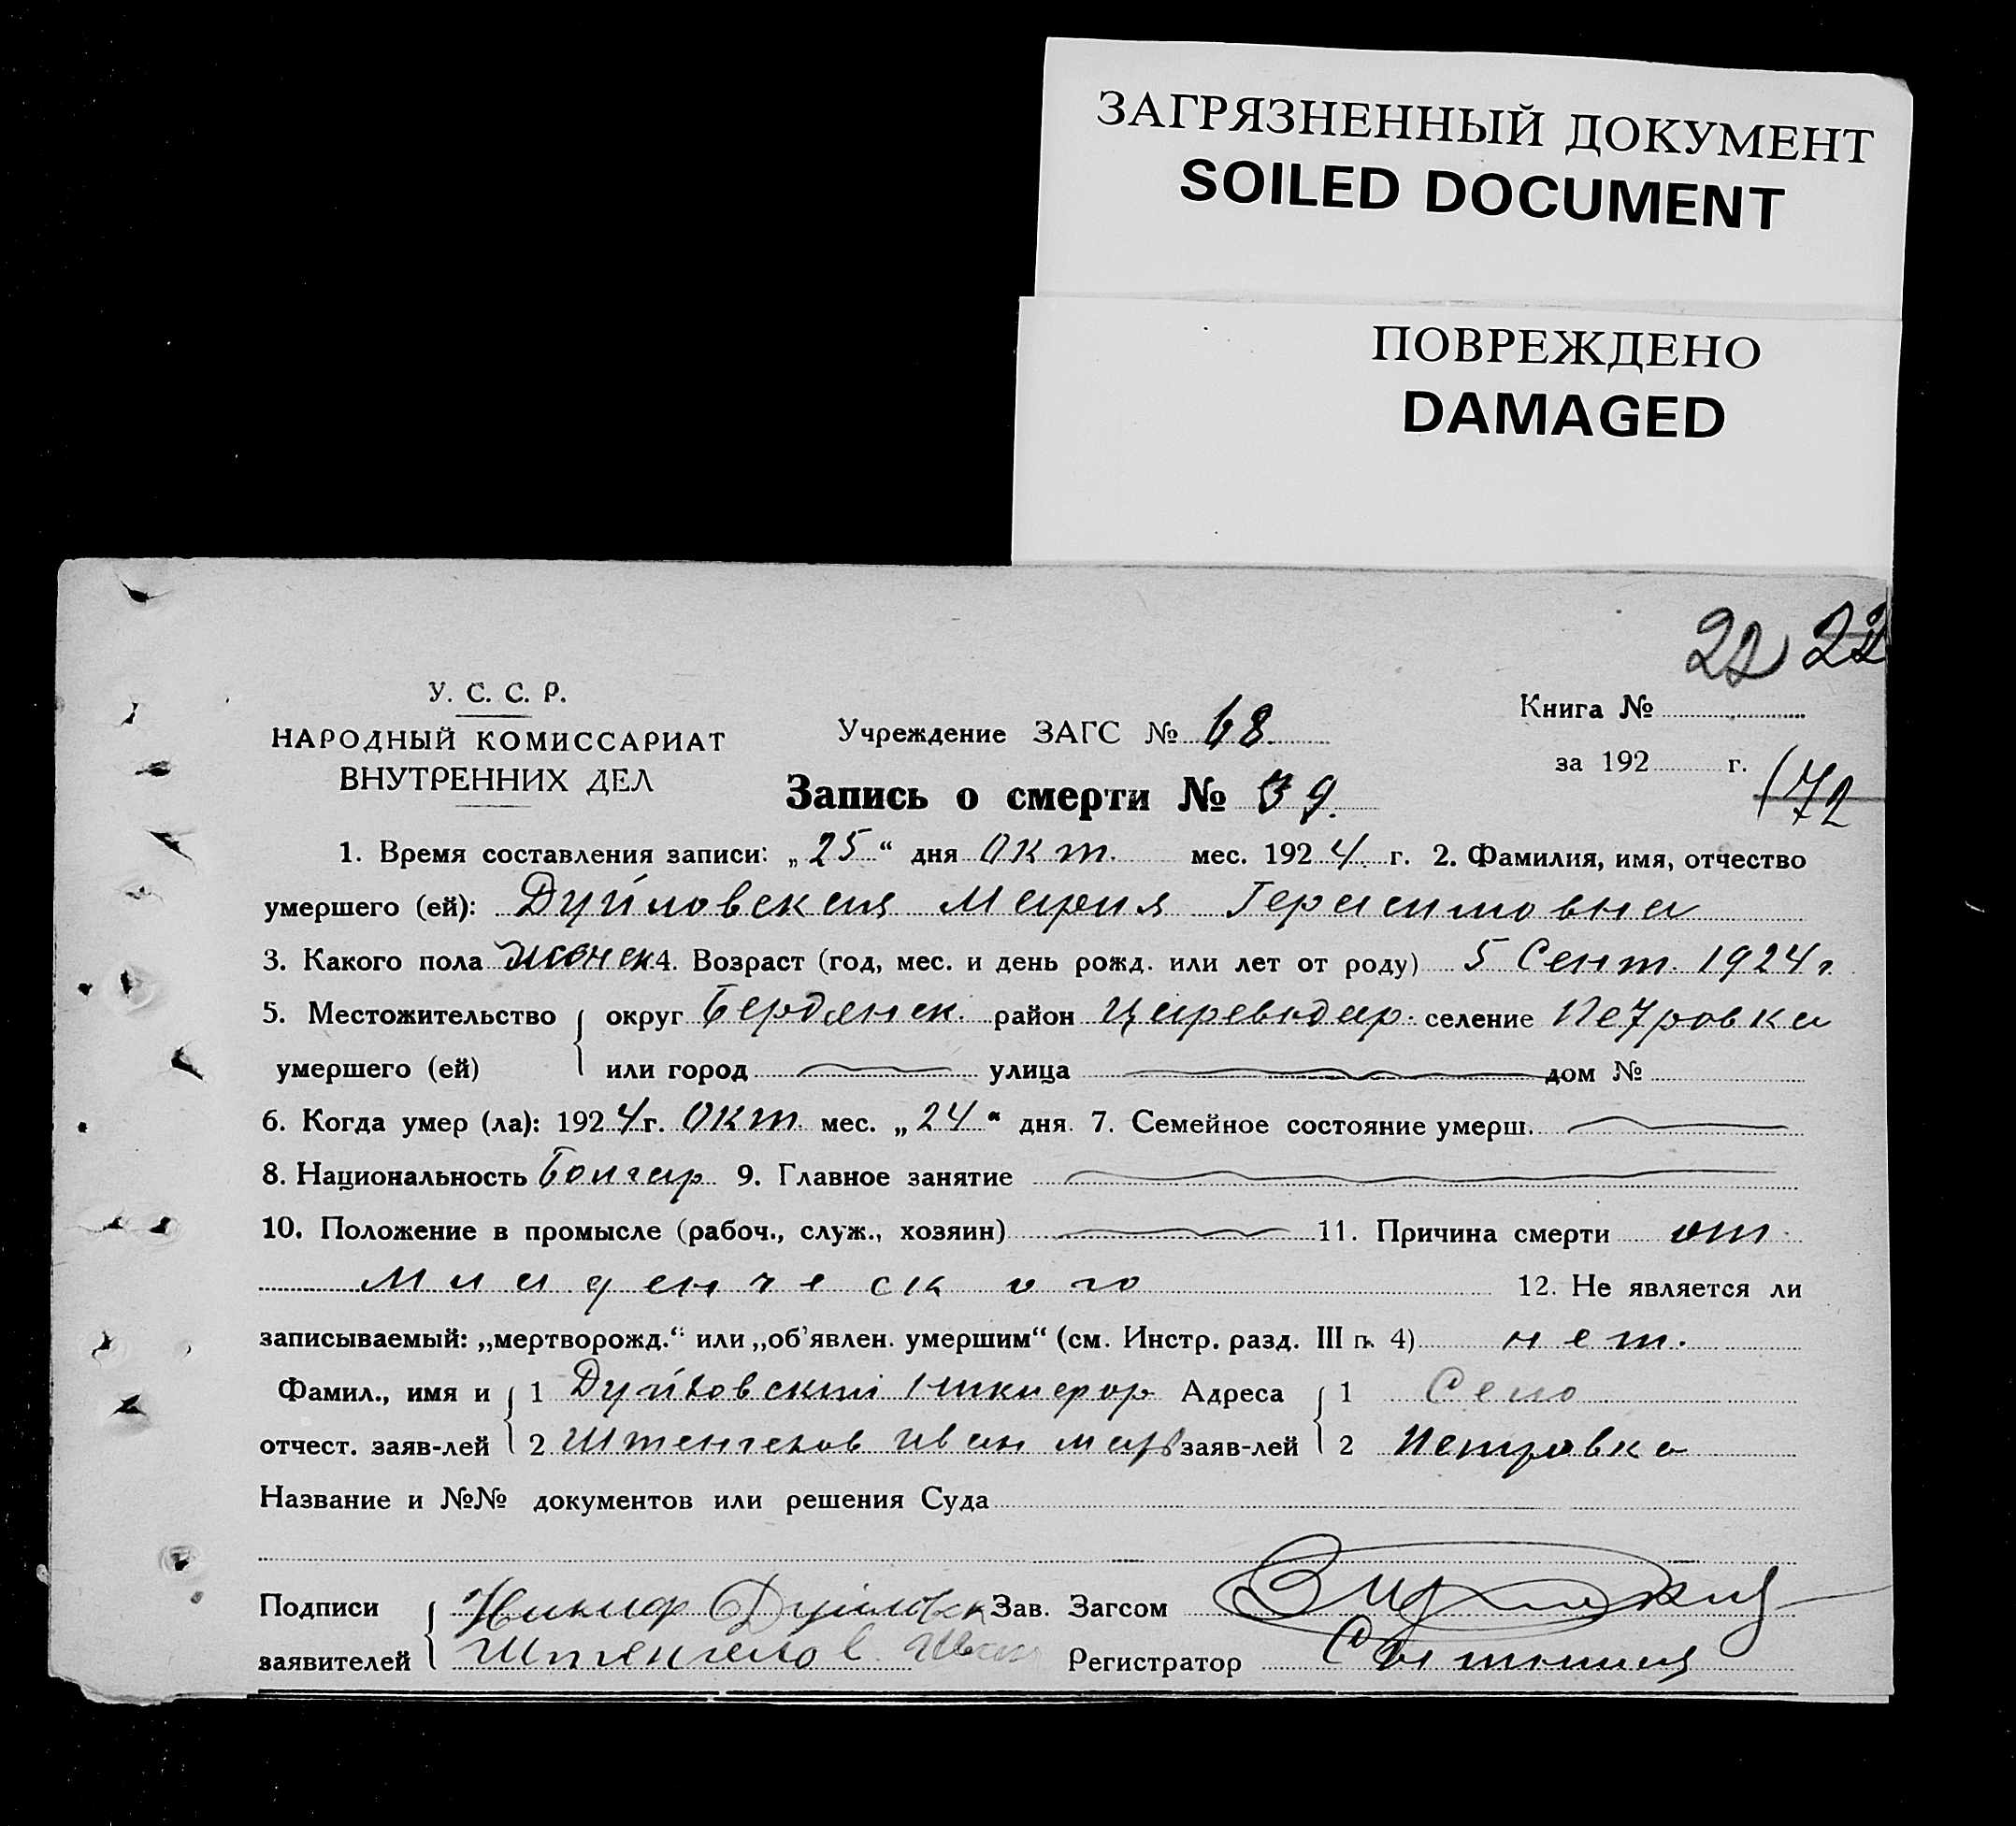 ЗАГРЯЗНЕННЫЙ ДОКУМЕНТ
SOILED DOCUMENT
ПОВРЕЖДЕНО
DAMAGED
22 22
У. С. С. Р.
НАРОДНЫЙ КОМИССАРИАТ
ВНУТРЕННИХ ДЕЛ
Учреждение ЗАГС № 68.
Запись о смерти № 39.
Книга №
за 192 г.
172
1. Время составления записи: „25“ дня Окт. мес. 1924 г. 2. Фамилия, имя, отчество
умершего (ей): Дуйловская Мария Герасимовна
3. Какого пола женск 4. Возраст (год, мес. и день рожд. или лет от роду) 5 Сент. 1924 г
5. Местожительство округ Бердянск. район Цареводар. селение Петровка
умершего (ей) или город улица дом №
6. Когда умер (ла): 1924 г. Окт. мес. „24“ дня. 7. Семейное состояние умерш.
8. Национальность Болгар 9. Главное занятие
10. Положение в промысле (рабоч., служ., хозяин) 11. Причина смерти от
Младенческого 12. Не является ли
записываемый: „мертворожд.“ или „об’явлен. умершим“ (см. Инстр. разд. III п. 4) нет.
Фамил., имя и 1 Дуйловский Никифор Адреса 1 Село
отчест. заяв-лей 2 Штенгелов Иван Мар заяв-лей 2 Петровка
Название и №№ документов или решения Суда
Подписи Никиф Дуйловск Зав. Загсом
заявителей Штенгелов Иван Регистратор